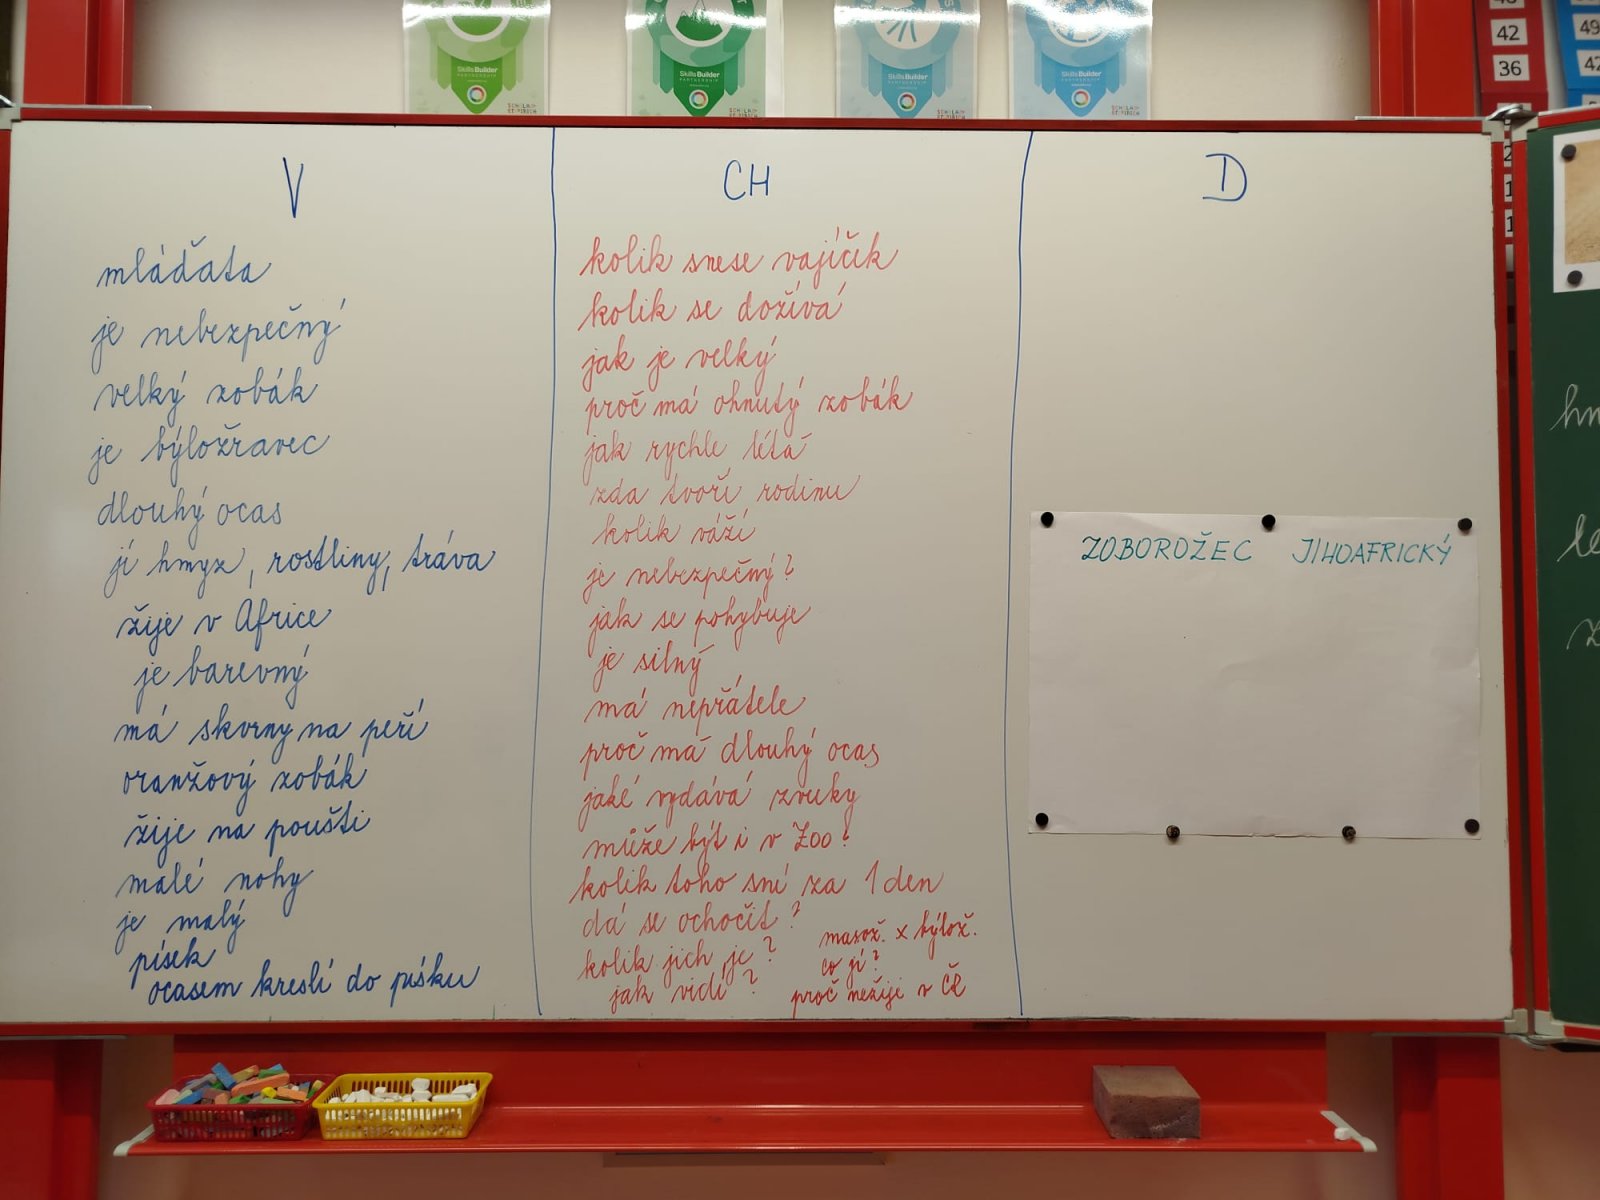 SkillsBuilder
PARTNERSHIP
SkillsBuilder
PARTNERSHIP
SkillsBuilder
PARTNERSHIP
SkillsBuilder
PARTNERSHIP
42
36
49
V
mláďata
je nebezpečný
velký zobák
je býložravec
dlouhý ocas
jí hmyz, rostliny, tráva
žije v Africe
je barevný
má skvrny na peří
oranžový zobák
žije na poušti
malé nohy
je malý
písek
ocasem kreslí do písku
CH
kolik snese vajíček
kolik se dožívá
jak je velký
proč má ohnutý zobák
jak rychle létá
zda tvoří rodinu
kolik váží
je nebezpečný?
jak se pohybuje
je silný
má nepřátele
proč má dlouhý ocas
jaké vydává zvuky
může být i v Zoo?
kolik toho sní za 1 den
dá se ochočit?
kolik jich je?
jak vidí?
masož. x býlož.
co jí?
proč nežije v ČR
D
ZOBOROŽEC JIHOAFRICKÝ